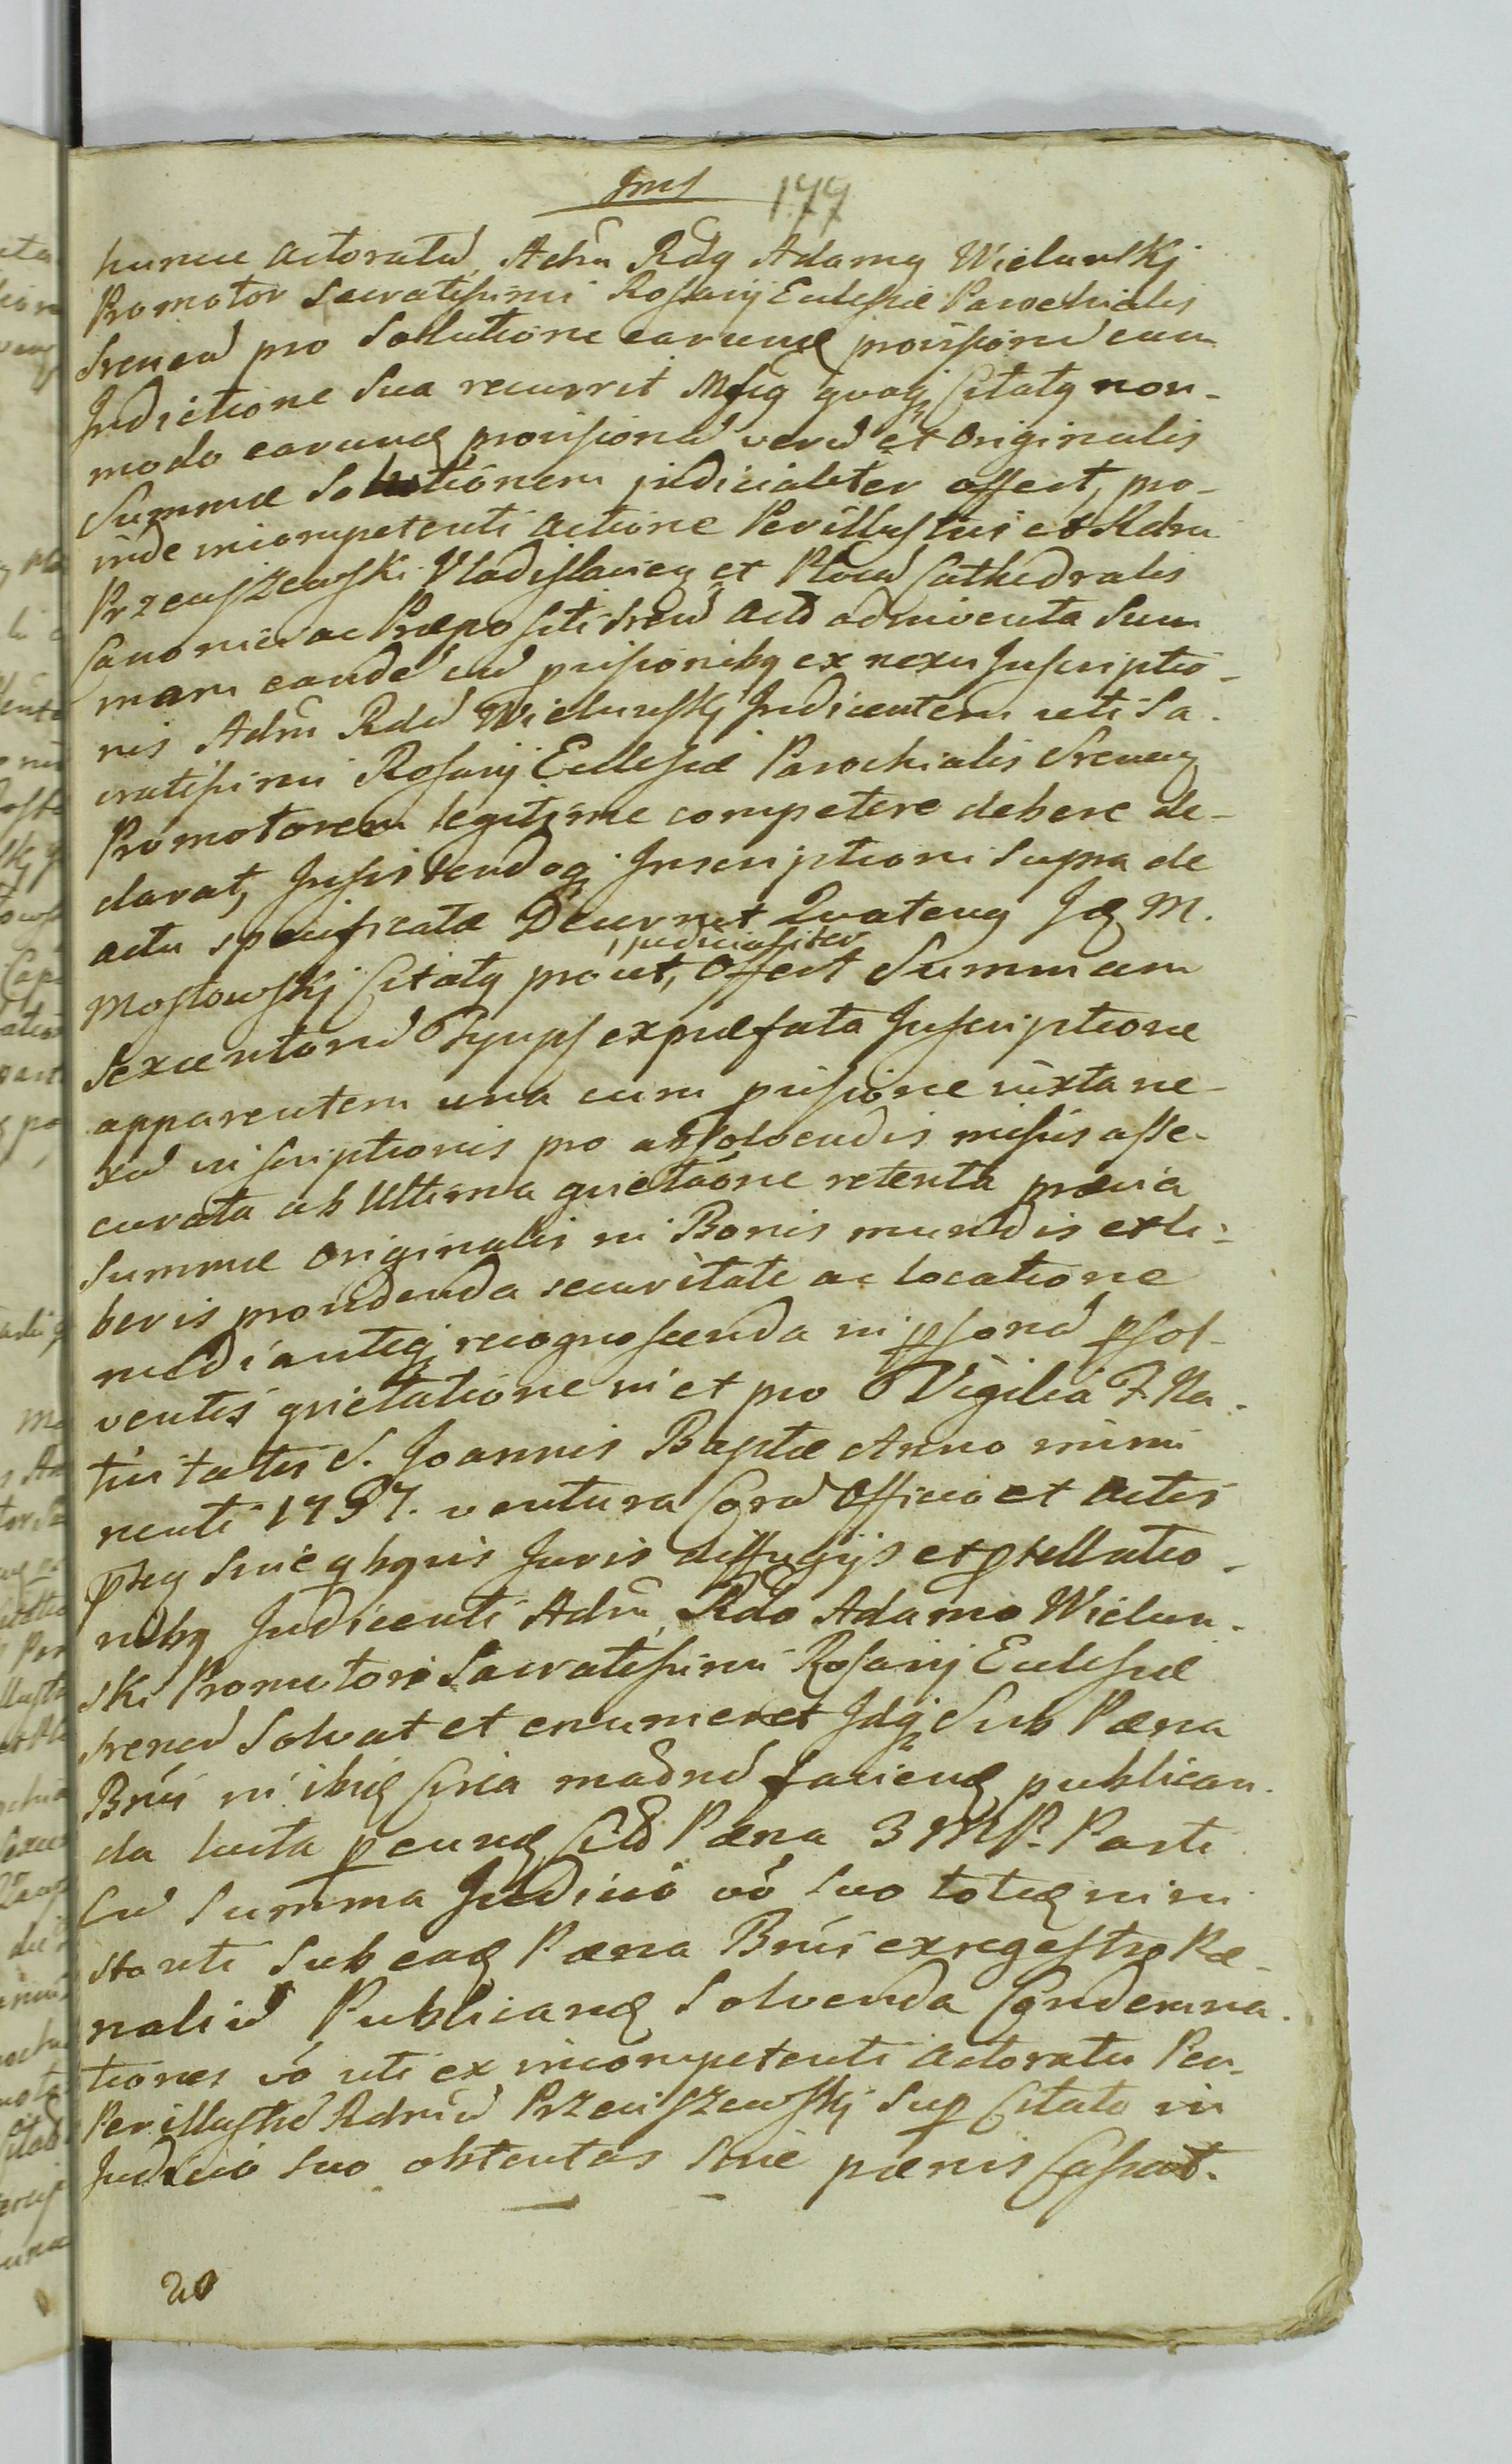 177
huncce actoratu, Adm Rdg Adamg Wielunskj
Promotor Sacratissimi Rosarij Ecclesiæ Parochialis
Srenen pro Sollutione earund provisionu cum
Judictione Sua recurrit Mfcg quoq Citatg non-
modo earund provisionu veru et originalis
Summæ Sollutionem judicialiter offert, pro-
inde incompetenti actione Perillustris et Rdmi
Przeciszewski Vladislavien et Plocen Cathedralis
Canonici ac Præpositi Sren adinventa Sum
mam eande cu pvisionibg ex nexu Inscriptio-
nis Adm Rdu Wielunskj Indicentem uti Sa-
cratissimi Rosarij Ecclesiæ Parochialis Srenen
Promotorem legitime competere debere de-
clarat, Insistendoq Inscriptioni Supra de
actu specificatæ Decernit Quateng M.
Mostowskj Citatg prout, judicialiter Offert Summam
Sexcentoru Tynpf ex præfata Inscriptione
apparentem una cum pvisione iuxta ne-
xu inscriptionis pro absolvendis missis asse-
curata ab Ultima quietaone retenta prævia
Summæ originalis in Bonis mundis et li-
beris providenda securitate ac locatione
medianteq recognoscenda in psonu psol-
ventis quietatione in et pro Vigilia F. Na-
tivitatis S. Joannis Baptæ Anno immi
nenti 1797. ventura Coram Officio et Actis
pntibg Sine qbgvis Juris diffugijs et ptellatio-
nibg Indicenti Adm Rdo Adamo Wielun-
ski Promotori Sacratissimi Rosarij Ecclesiæ
Srenen Solvat et enumeret Idq Sub Pæna
Bnis in ibid Cria madnu faciend publican-
da lucta p eund Citd Pæna 3 MP. Parti
Cu Summa Judicio vo Suo totid nimi
stanti Sub ead Pæna Bnis ex regestro Pæ-
naliu Publicand Solvenda Condemna-
tiones vo uti ex incompetenti actoratu Per-
Perillustru Rdmu Przeciszewskj Sup Citato in
Judicio Suo obtentas Sine pænis Cassat.
20